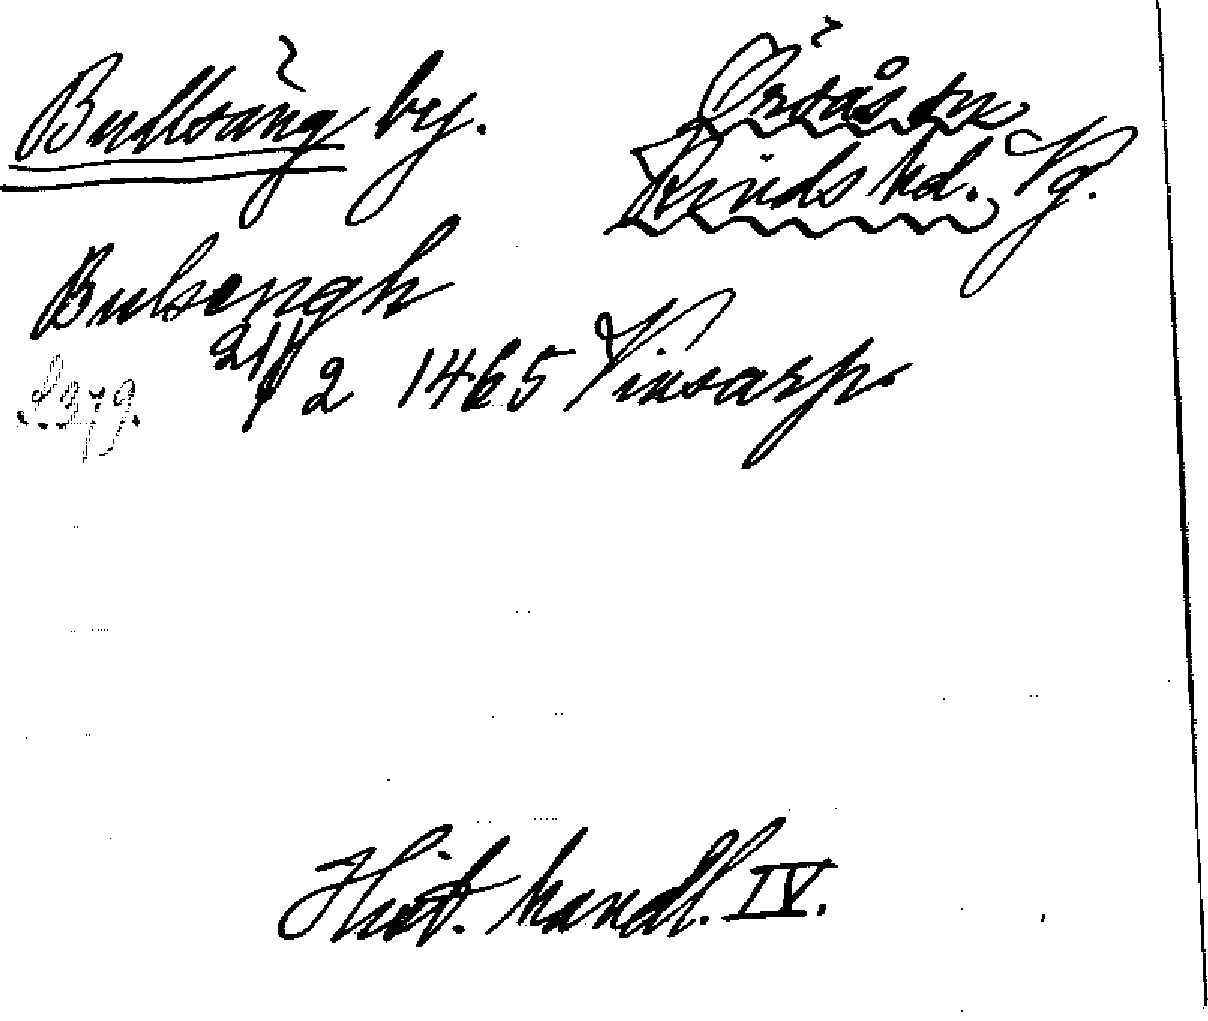 Bullsäng by.
Örsås sn
Kinds hd. Vg.
Bulsengh
21/2 1465 Vinsarp.
S379.
Hist. handl. IV.